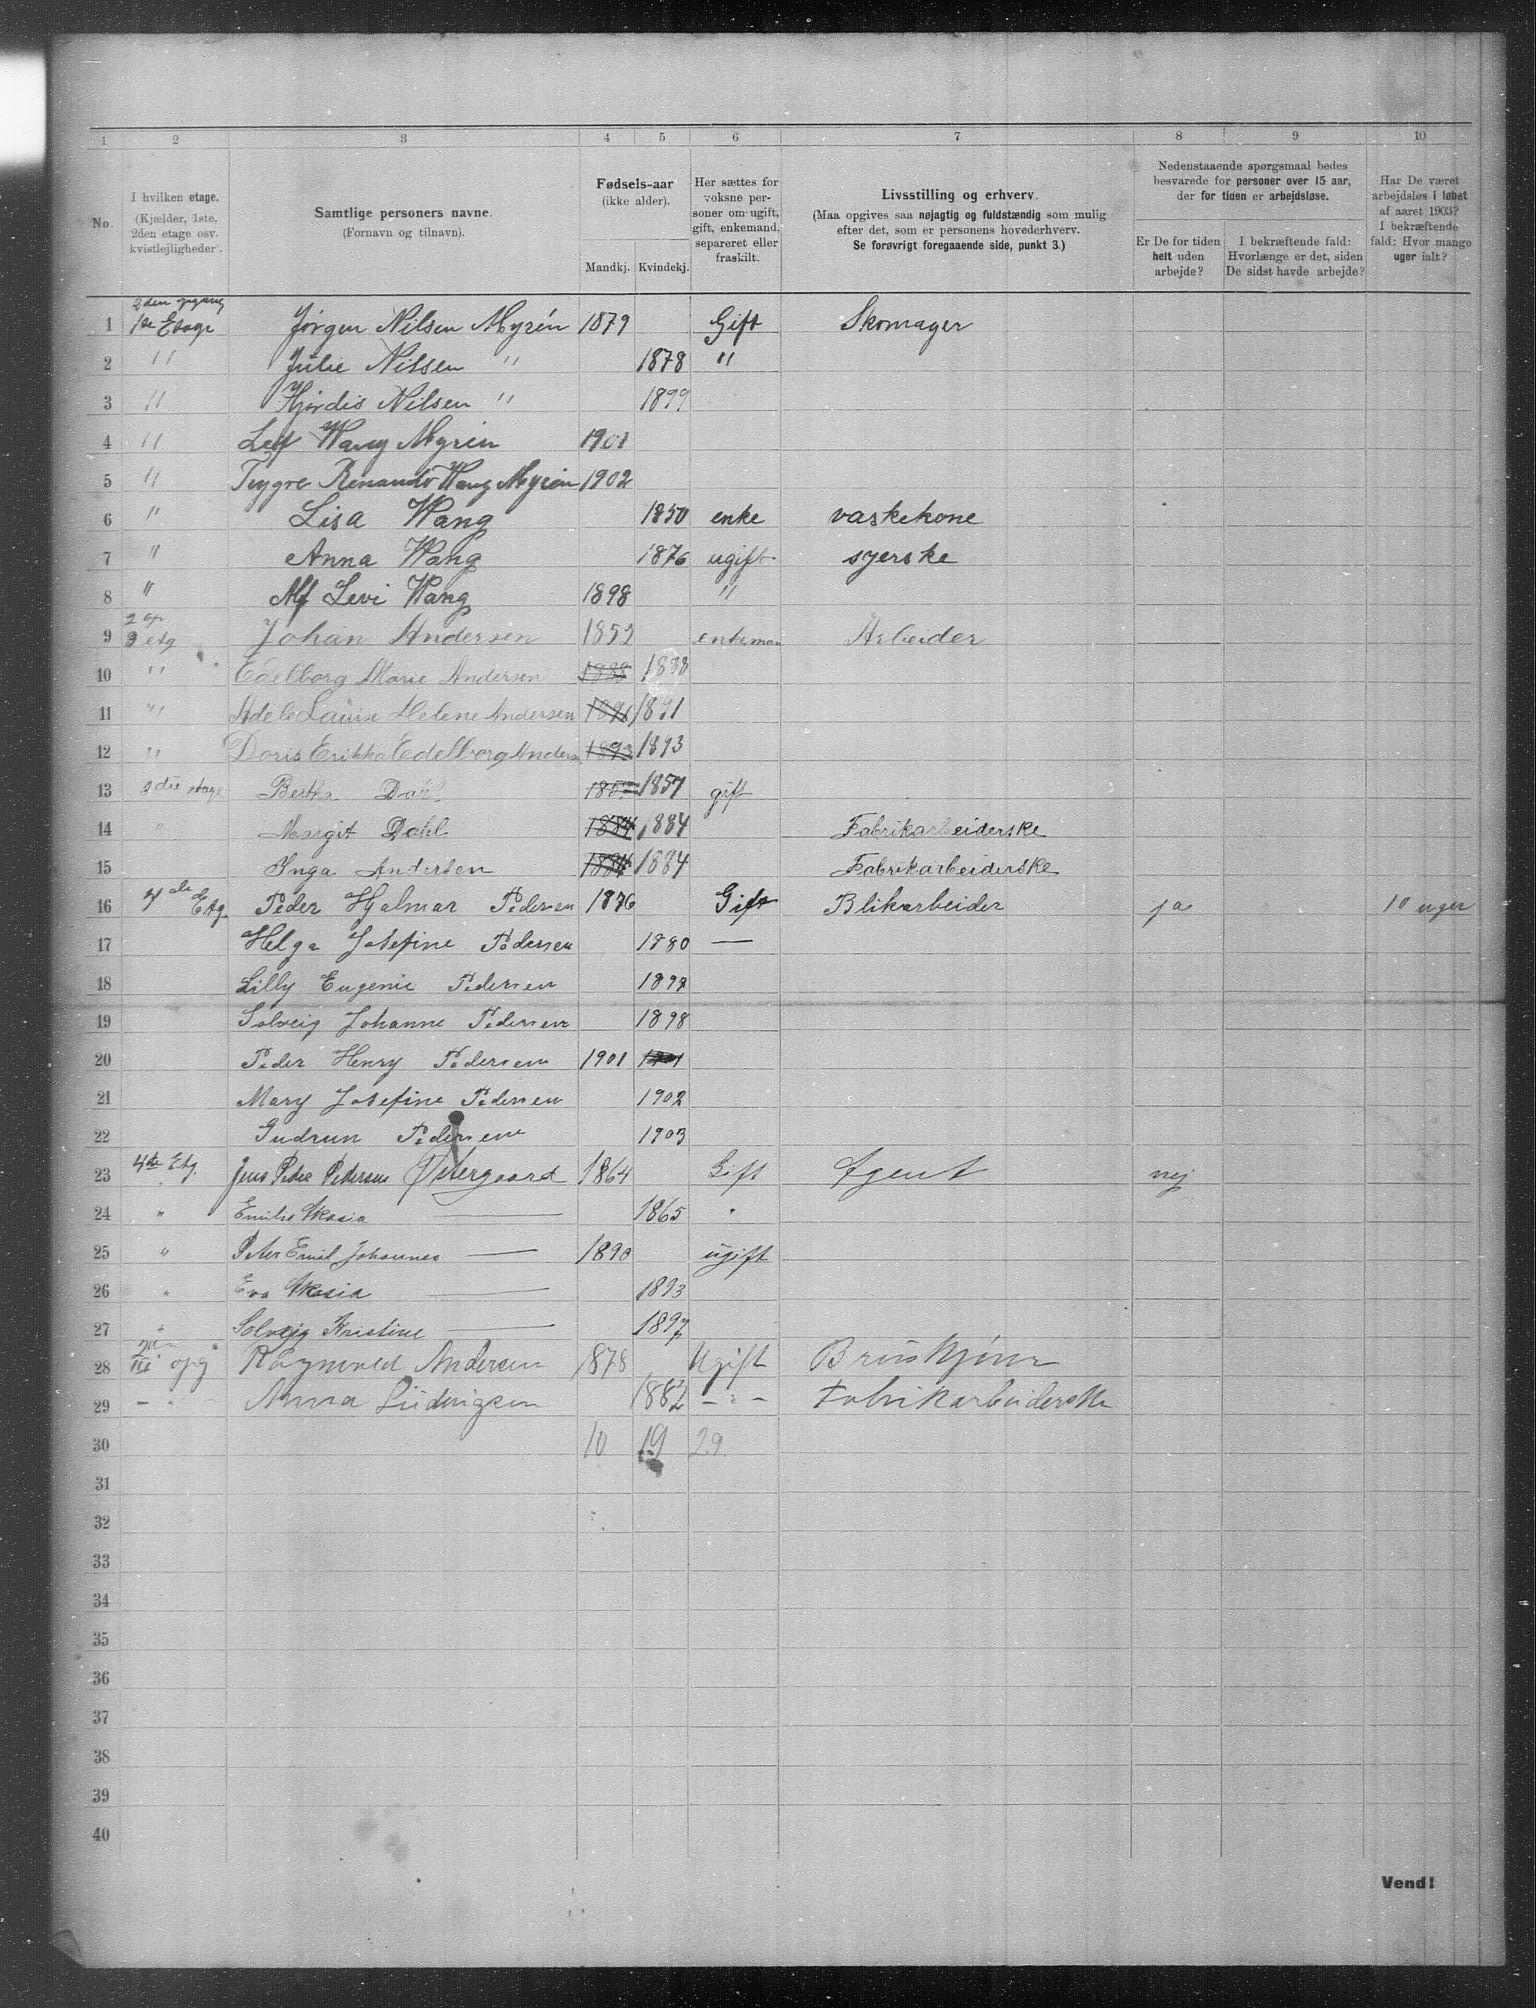 1 2 3 4 5 6 7 8 9 10
No.
I hvilken etage.
(Kjælder, 1ste,
2den etage osv.
kvistlejligheder).
Samtlige personers navne.
(Fornavn og tilnavn).
Fødsels-aar
(ikke alder).
Mandkj. Kvindekj.
Her sættes for
voksne per-
soner om ugift,
gift, enkemand,
separeret eller
fraskilt.
Livsstilling og erhverv.
(Maa opgives saa nøjagtig og fuldstændig som mulig
efter det, som er personens hovederhverv.
Se forøvrigt foregaaende side, punkt 3.)
Nedenstaaende spørgsmaal bedes
besvarede for personer over 15 aar,
der for tiden er arbejdsløse.
Er De for tiden
helt uden
arbejde?
I bekræftende fald:
Hvorlænge er det, siden
De sidst havde arbejde?
Har De været
arbejdsløs i løbet
af aaret 1903?
I bekræftende
fald: Hvor mange
uger ialt?
2den opgang
1 1ste Etage Jörgen Nilsen Myrén 1879 Gift Skomager
2 " Julie Nilsen " 1878 "
3 " Hjørdis Nilsen " 1899
4 " Leif Wang Myrén 1901
5 " Trygve Wang Myrén 1902
6 " Lisa Wang 1850 enke vaskekone
7 " Anna Wang 1876 ugift syerske
8 " Alf Levi Wang 1898 "
2 op
9 3 etg Johan Andersen 1852 enkeman Arbeider
10 " Edelborg Marie Andersen 1888 1888
11 " Adele Louise Helene Andersen 1891 1891
12 " Doris Erikka Edelborg Andersen 1893 1893
13 3die etage Bertha Dahl 1857 1857 gift
14 " Margit Dahl 1884 1884 Fabrikarbeiderske
15 Inga Andersen 1884 1884 Fabrikarbeiderske
16 4de Etg. Peder Hjalmar Pedersen 1876 Gift Blikarbeider ja 10 uger
17 Helga Josefine Pedersen 1880 —
18 Lilly Eugenie Pedersen 1897
19 Solveig Johanne Pedersen 1898
20 Peder Henry Pedersen 1901 1901
21 Mary Josefine Pedersen 1902
22 Gudrun Pedersen 1903
23 4de Etg. Jens Peder Pedersen Østergaard 1864 Gift Agent nej
24 " Emilie Akasia — 1865 "
25 " Peter Emil Johannes — 1890 ugift
26 " Eva Akasia — 1893
27 " Solvejg Kristine — 1897
28 III opg Ragnvald Andersen 1878 Ugift
29 – " Anna Lüdvigsen 1882 – " – Fabrikarbeiderske
30 10 19 29.
31
32
33
34
35
36
37
38
39
40
Vend!